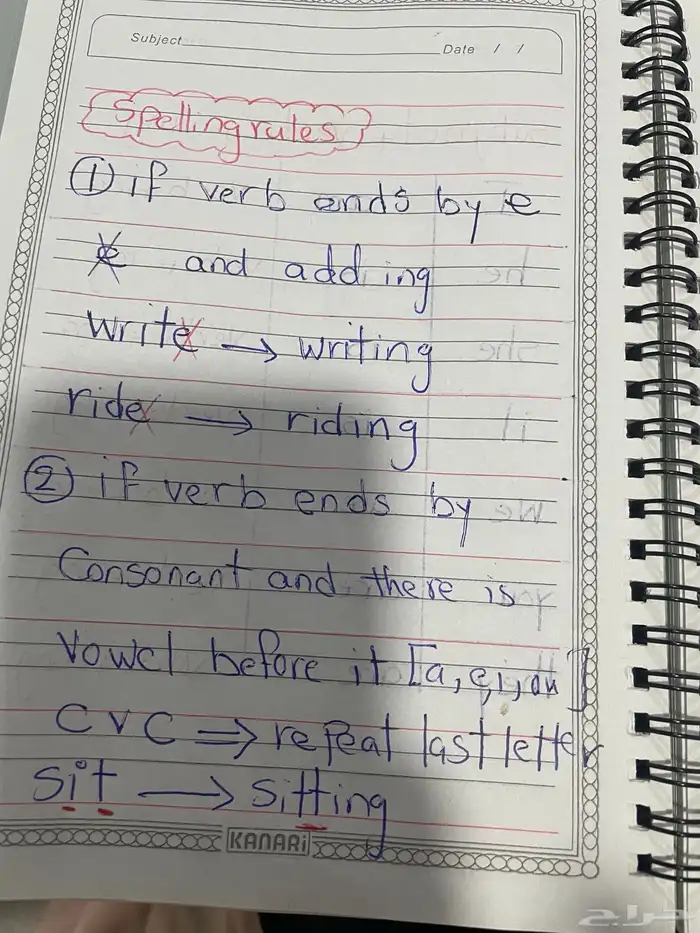 Subject
Date / /
Spelling rules
① if verb ends by e
e and add ing
write → writing
ride → riding
② if verb ends by
Consonant and there is
Vowel before it [a, e, i, ou]
CVC ⇒ repeat last letter
sit → sitting
KANARi
حراج